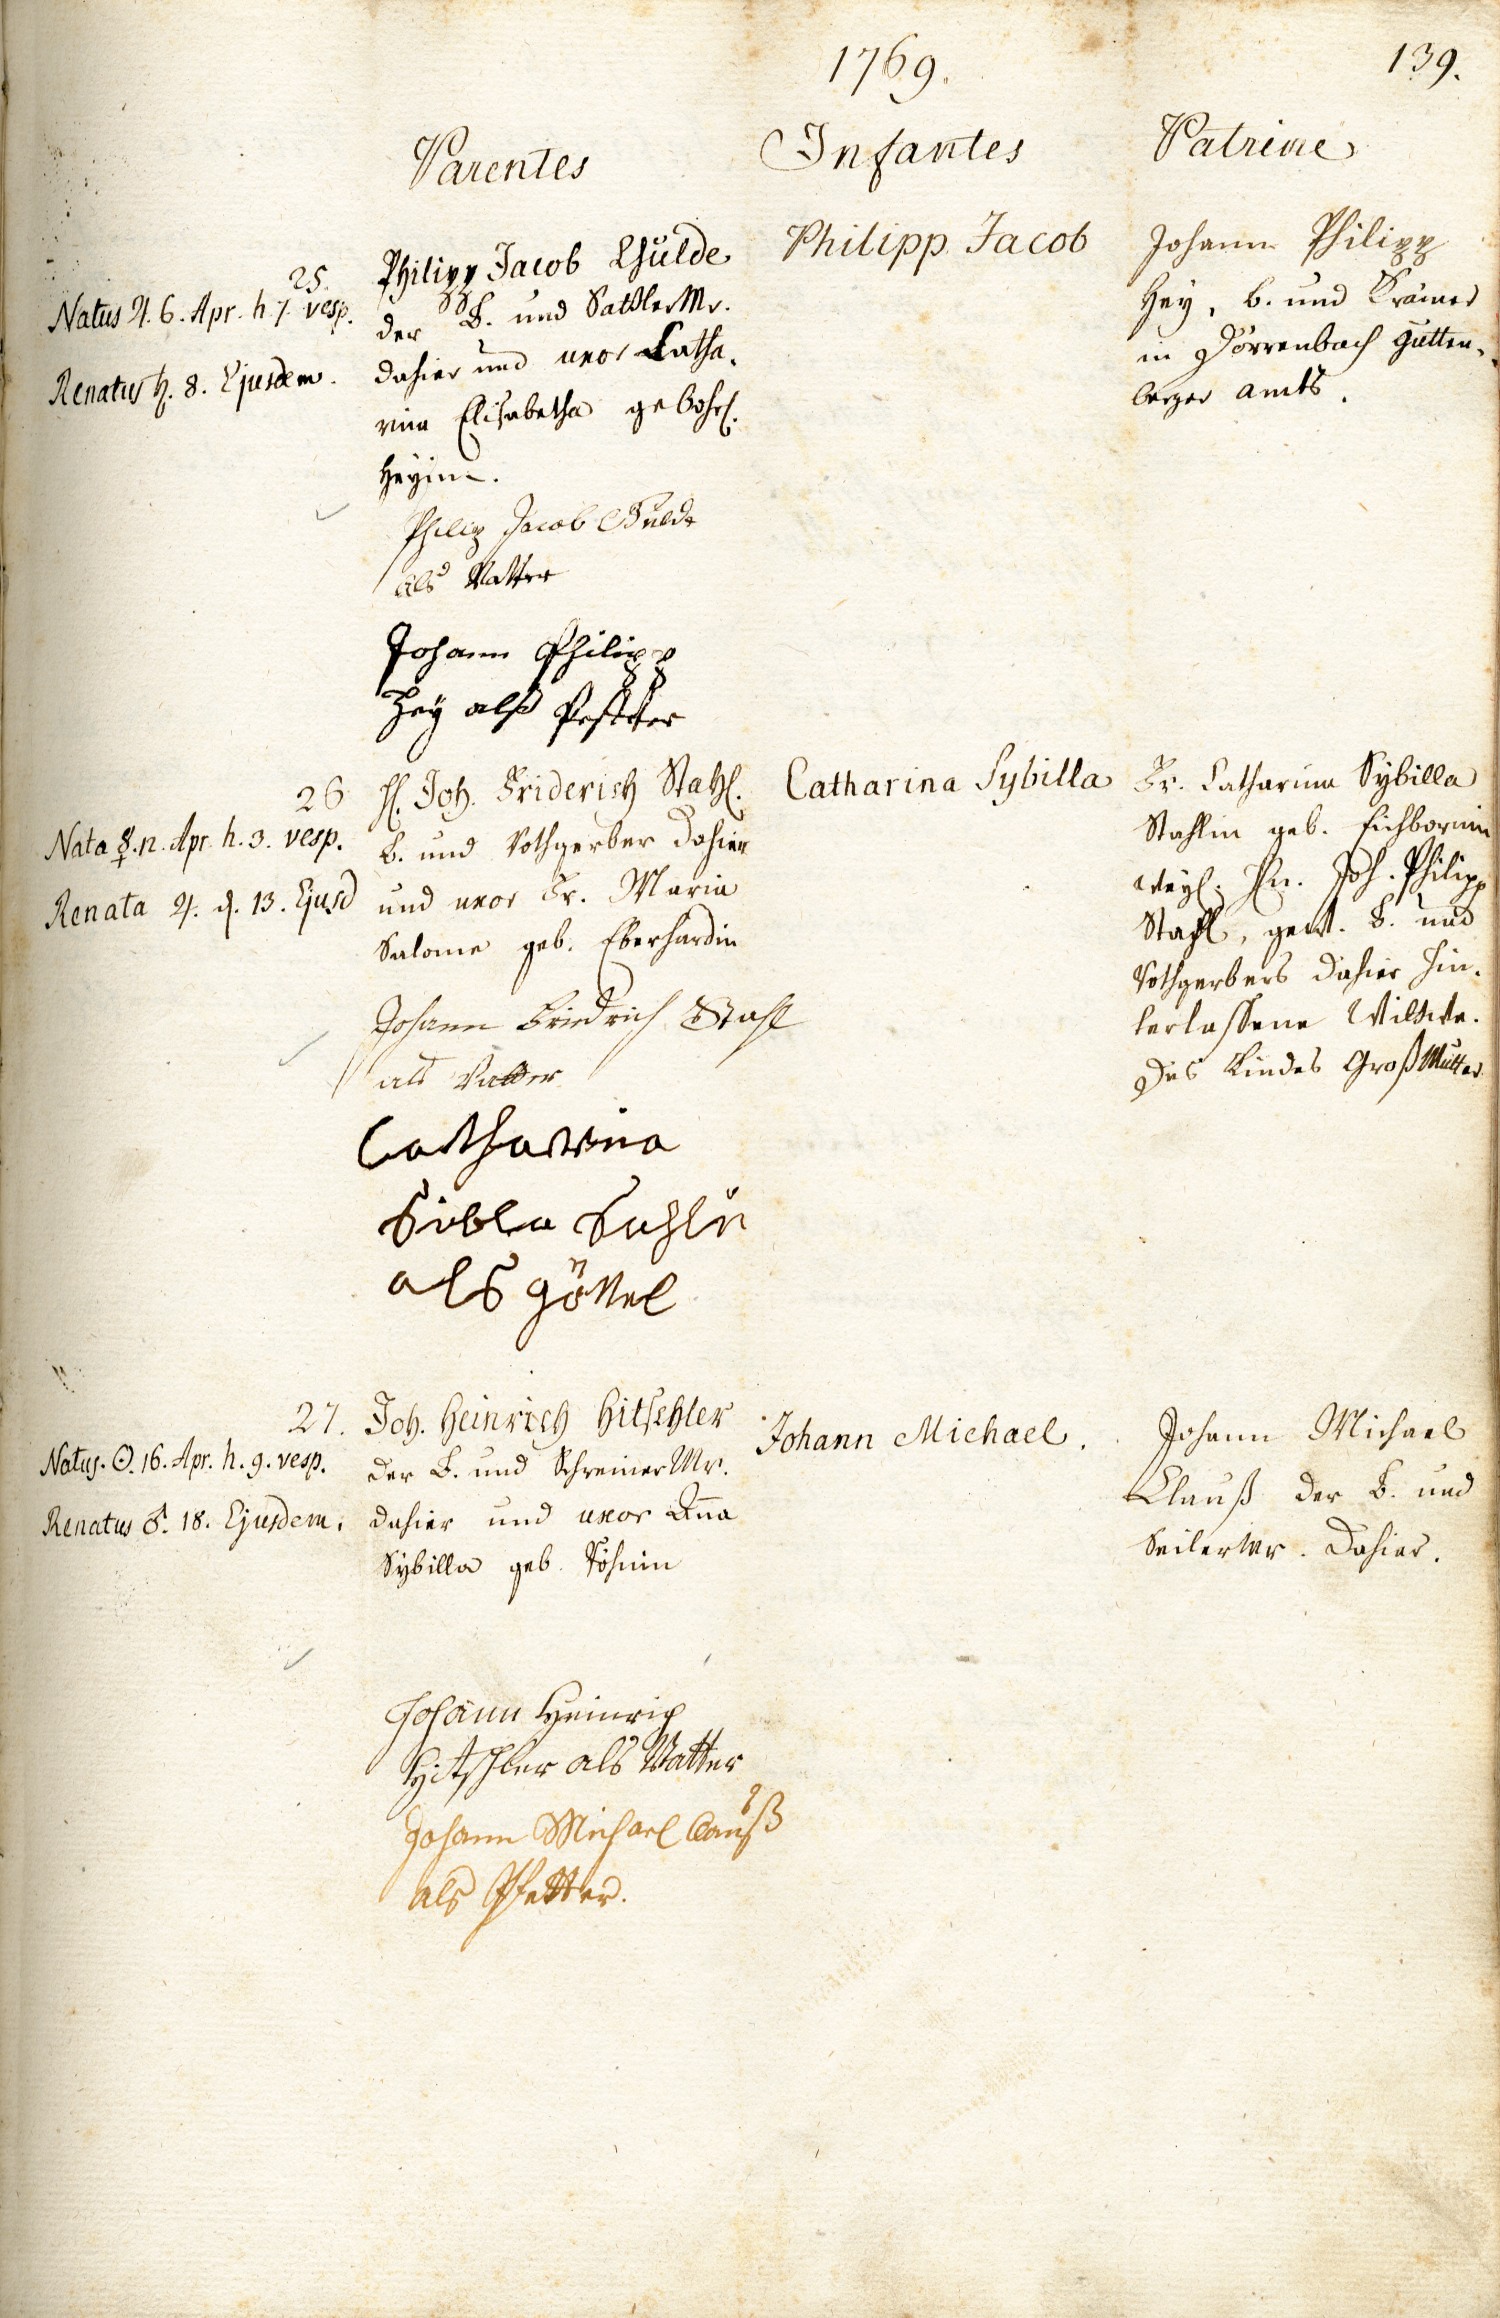 1769.
139.
Parentes
Infantes
Patrini
25.
Natus ♃. 6. Apr. h. 7. vesp.
Renatus ♄. 8. Ejusdem.
Philipp Jacob Gulde
der B. und Sattler Mr.
dahier und uxor Catha-
rina Elisabetha gebohrl.
Heyin.
Philip Jacob Gulde
als Vatter
Johann Philipp
Hey alß Pfetter
Philipp Jacob
Johann Philipp
Hey, b. und Krämer
in Dörrenbach Gutten-
berger amts.
26
Nata ☿. 12. Apr. h. 3. vesp.
Renata ♃. d. 13. Ejusd
H. Joh. Friderich Stahl.
B. und Rothgerber dahier
und uxor Fr. Maria
Salome geb. Eberhardin
Johann Friedrich Stahl
als Vatter
Catharina
Sibla Sahlin
als göttel
Catharina Sybilla
Fr. Catharina Sybilla
Stahlin geb. Eichbornin
weyl. Hn. Joh. Philipp
Stahl, gew. B. und
Rothgerbers dahier hin-
terlassene Wittwe.
des Kindes GroßMutter
27.
Natus. ☉. 16. Apr. h. 9. vesp.
Renatus ♂. 18. Ejusdem.
Joh. Heinrich Hitschler
der B. und Schreiner Mr.
dahier und uxor Aña
Sybilla geb.
Johann Heinrich
Hitschler als Vatter
Johann Michael Clauß
als Pfetter.
Johann Michael.
Johann Michael
Clauß der B. und
Seiler Mr. dahier.